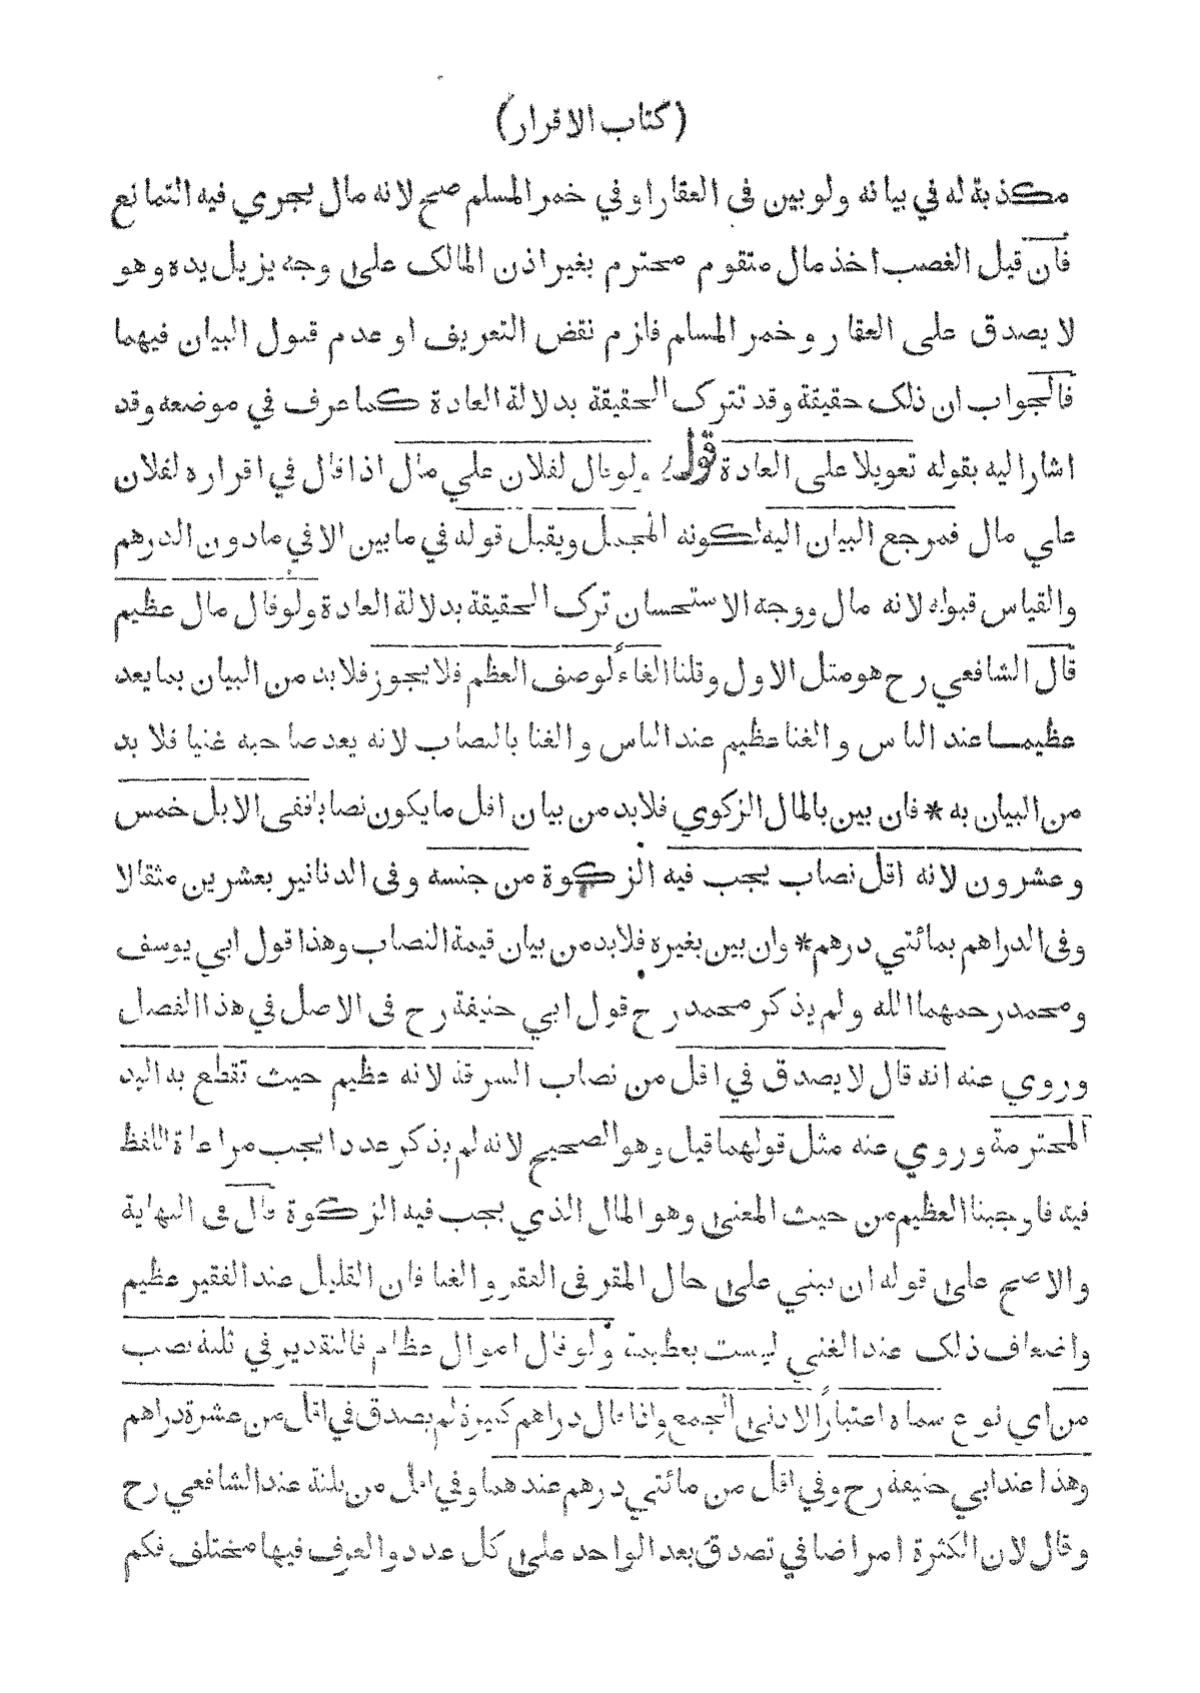 (كتاب الاقرار)
مكذبة له في بيانه ولو بين في العقار او في خمر المسلم صح لانه مال يجري فيه التمانع
فان قيل الغصب اخذ مال متقوم محترم بغير اذن المالك على وجه يزيل يده وهو
لا يصدق على العقار وخمر المسلم فلزم نقض التعريف او عدم قبول البيان فيهما
فالجواب ان ذلك حقيقة وقد تترك الحقيقة بدلالة العادة كما عرف في موضعه وقد
اشار اليه بقوله تعويلا على العادة قوله ولو قال لفلان علي مال اذا قال في اقراره لفلان
علي مال فمرجع البيان اليه لكونه المجمل ويقبل قوله في ما بين الا في ما دون الدرهم
والقياس قبوله لانه مال ووجه الاستحسان ترك الحقيقة بدلالة العادة ولو قال مال عظيم
قال الشافعي رح هو مثل الاول وقلنا الغاء لوصف العظم فلا يجوز فلابد من البيان بما يعد
عظيما عند الناس والغنا عظيم عند الناس والغنا بالنصاب لانه يعد صاحبه غنيا فلا بد
من البيان به * فان بين بالمال الزكوي فلابد من بيان اقل ما يكون نصابا ففى الابل خمس
وعشرون لانه اقل نصاب يجب فيه الزكوة من جنسه وفى الدنانير بعشرين مثقالا
وفى الدراهم بمائتي درهم * وان بين بغيره فلابد من بيان قيمة النصاب وهذا قول ابي يوسف
ومحمد رحمهما الله ولم يذكر محمد رح قول ابي حنيفة رح فى الاصل في هذا الفصل
وروي عنه انه قال لا يصدق في اقل من نصاب السرقة لانه عظيم حيث تقطع به اليد
المحترمة وروي عنه مثل قولهما قيل وهو الصحيح لانه لم يذكر عددا يجب مراعاة اللفظ
فيه فاوجبنا العظيم من حيث المعنى وهو المال الذي يجب فيه الزكوة قال فى النهاية
والاصح على قوله ان يبني على حال المقر فى الفقر والغنا فان القليل عند الفقير عظيم
واضعاف ذلك عند الغني ليست بعظيمة ولو قال اموال عظام فالتقدير في ثلثة نصب
من اي نوع سماه اعتبارا لادنى الجمع واذا قال دراهم كثيرة لم يصدق في اقل من عشرة دراهم
وهذا عند ابي حنيفة رح وفي اقل من مائتي درهم عندهما وفي اقل من ثلثة عند الشافعي رح
وقال لان الكثرة امر اضافي تصدق بعد الواحد على كل عدد والعرف فيها مختلف فكم